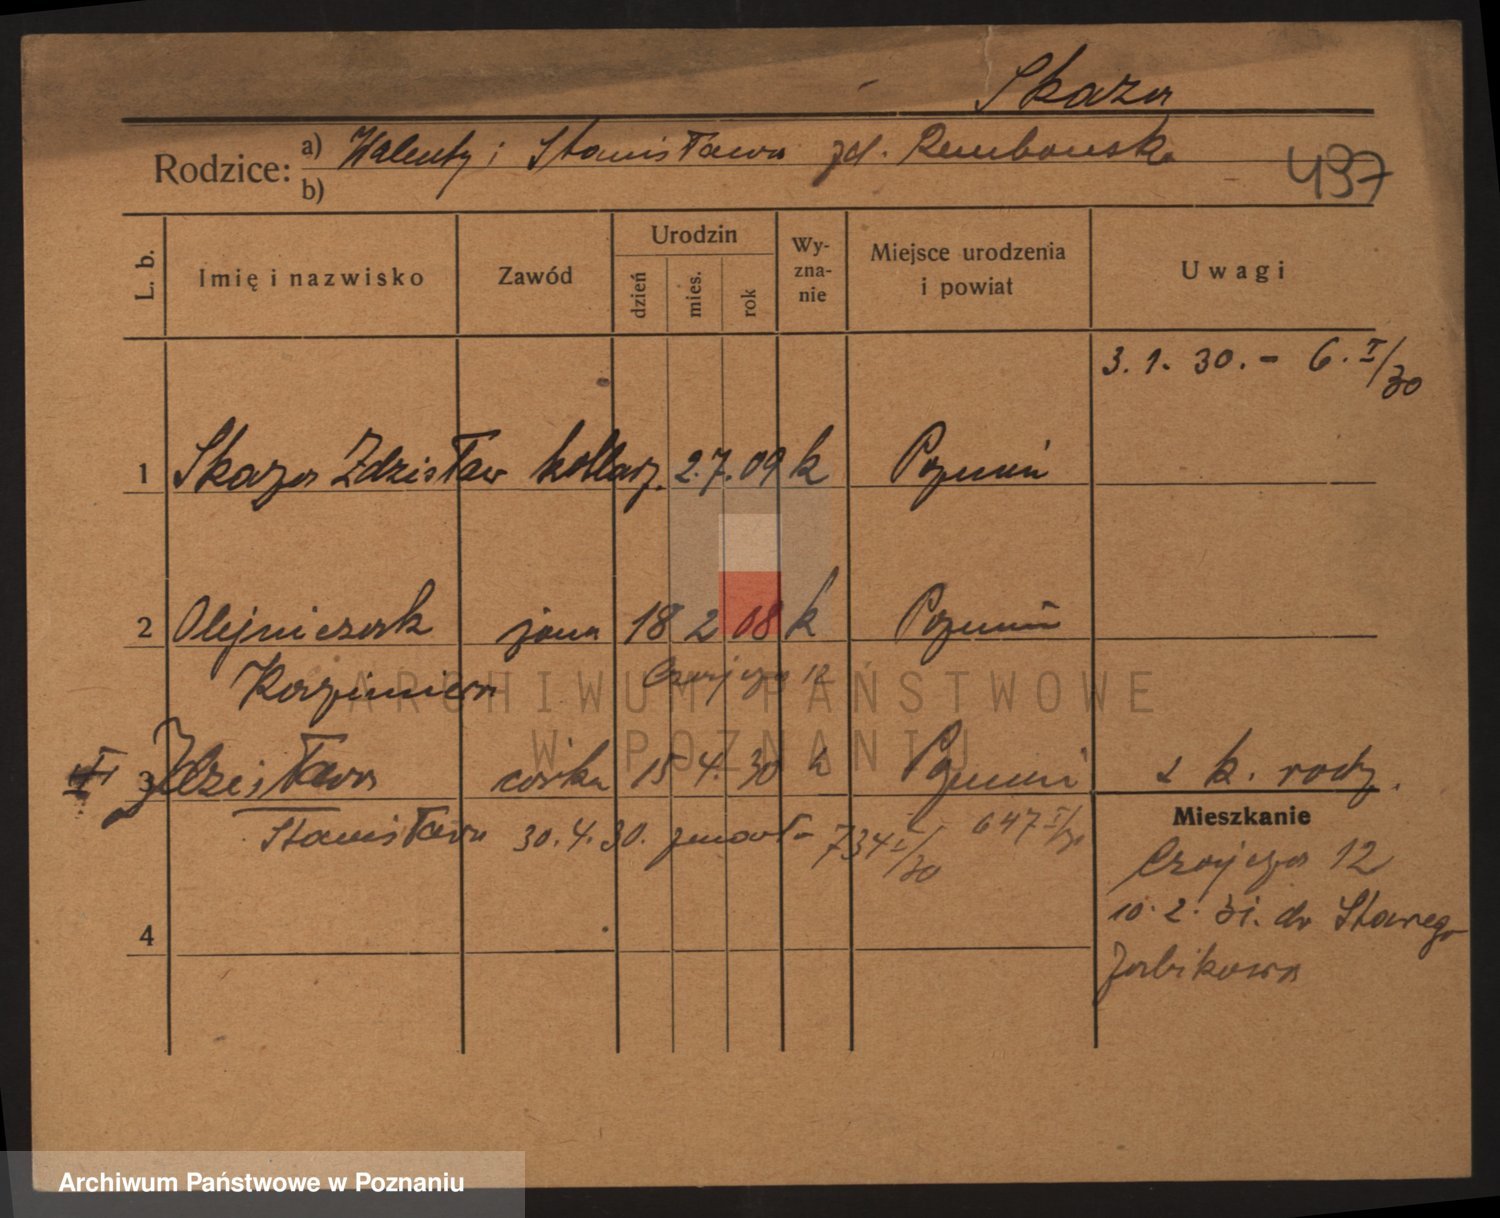 Skaza
Rodzice: a) Walenty i Stanisława zd. Rembowska
b)
437
L. b. Imię i nazwisko Zawód Urodzin dzień mies. rok Wy-zna-nie Miejsce urodzenia i powiat Uwagi
3. 1. 30. - 6. I/30
1 Skaza Zdzisław 2. 7. 09 k Poznań
2 Olejniczak żona 18 2 08 k Poznań
Kazimiera
3 Zdzisława córka 15 4. 30 k Poznań z k. rodz.
Mieszkanie
Stanisława 30. 4. 30. 734 647
12
10. 2. 31. do Starego
4
Żabikowa
ARCHIWUM PAŃSTWOWE
W POZNANIU
Archiwum Państwowe w Poznaniu